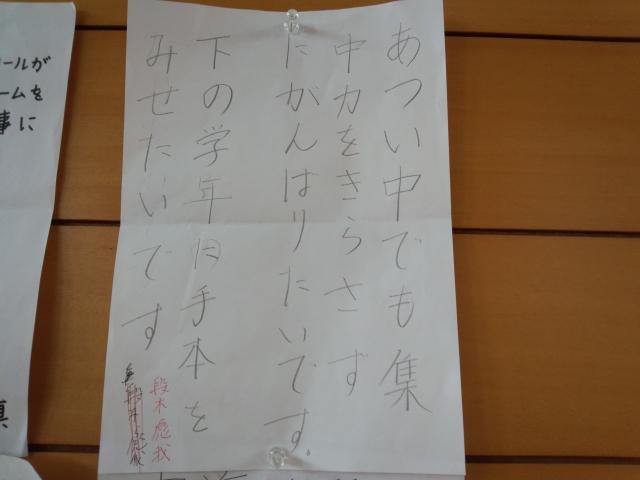 あつい中でも集
中力をきらさず
にがんはりたいです。
下の学年に手本を
みせたいです
段木
ールが
ームを
事に
真